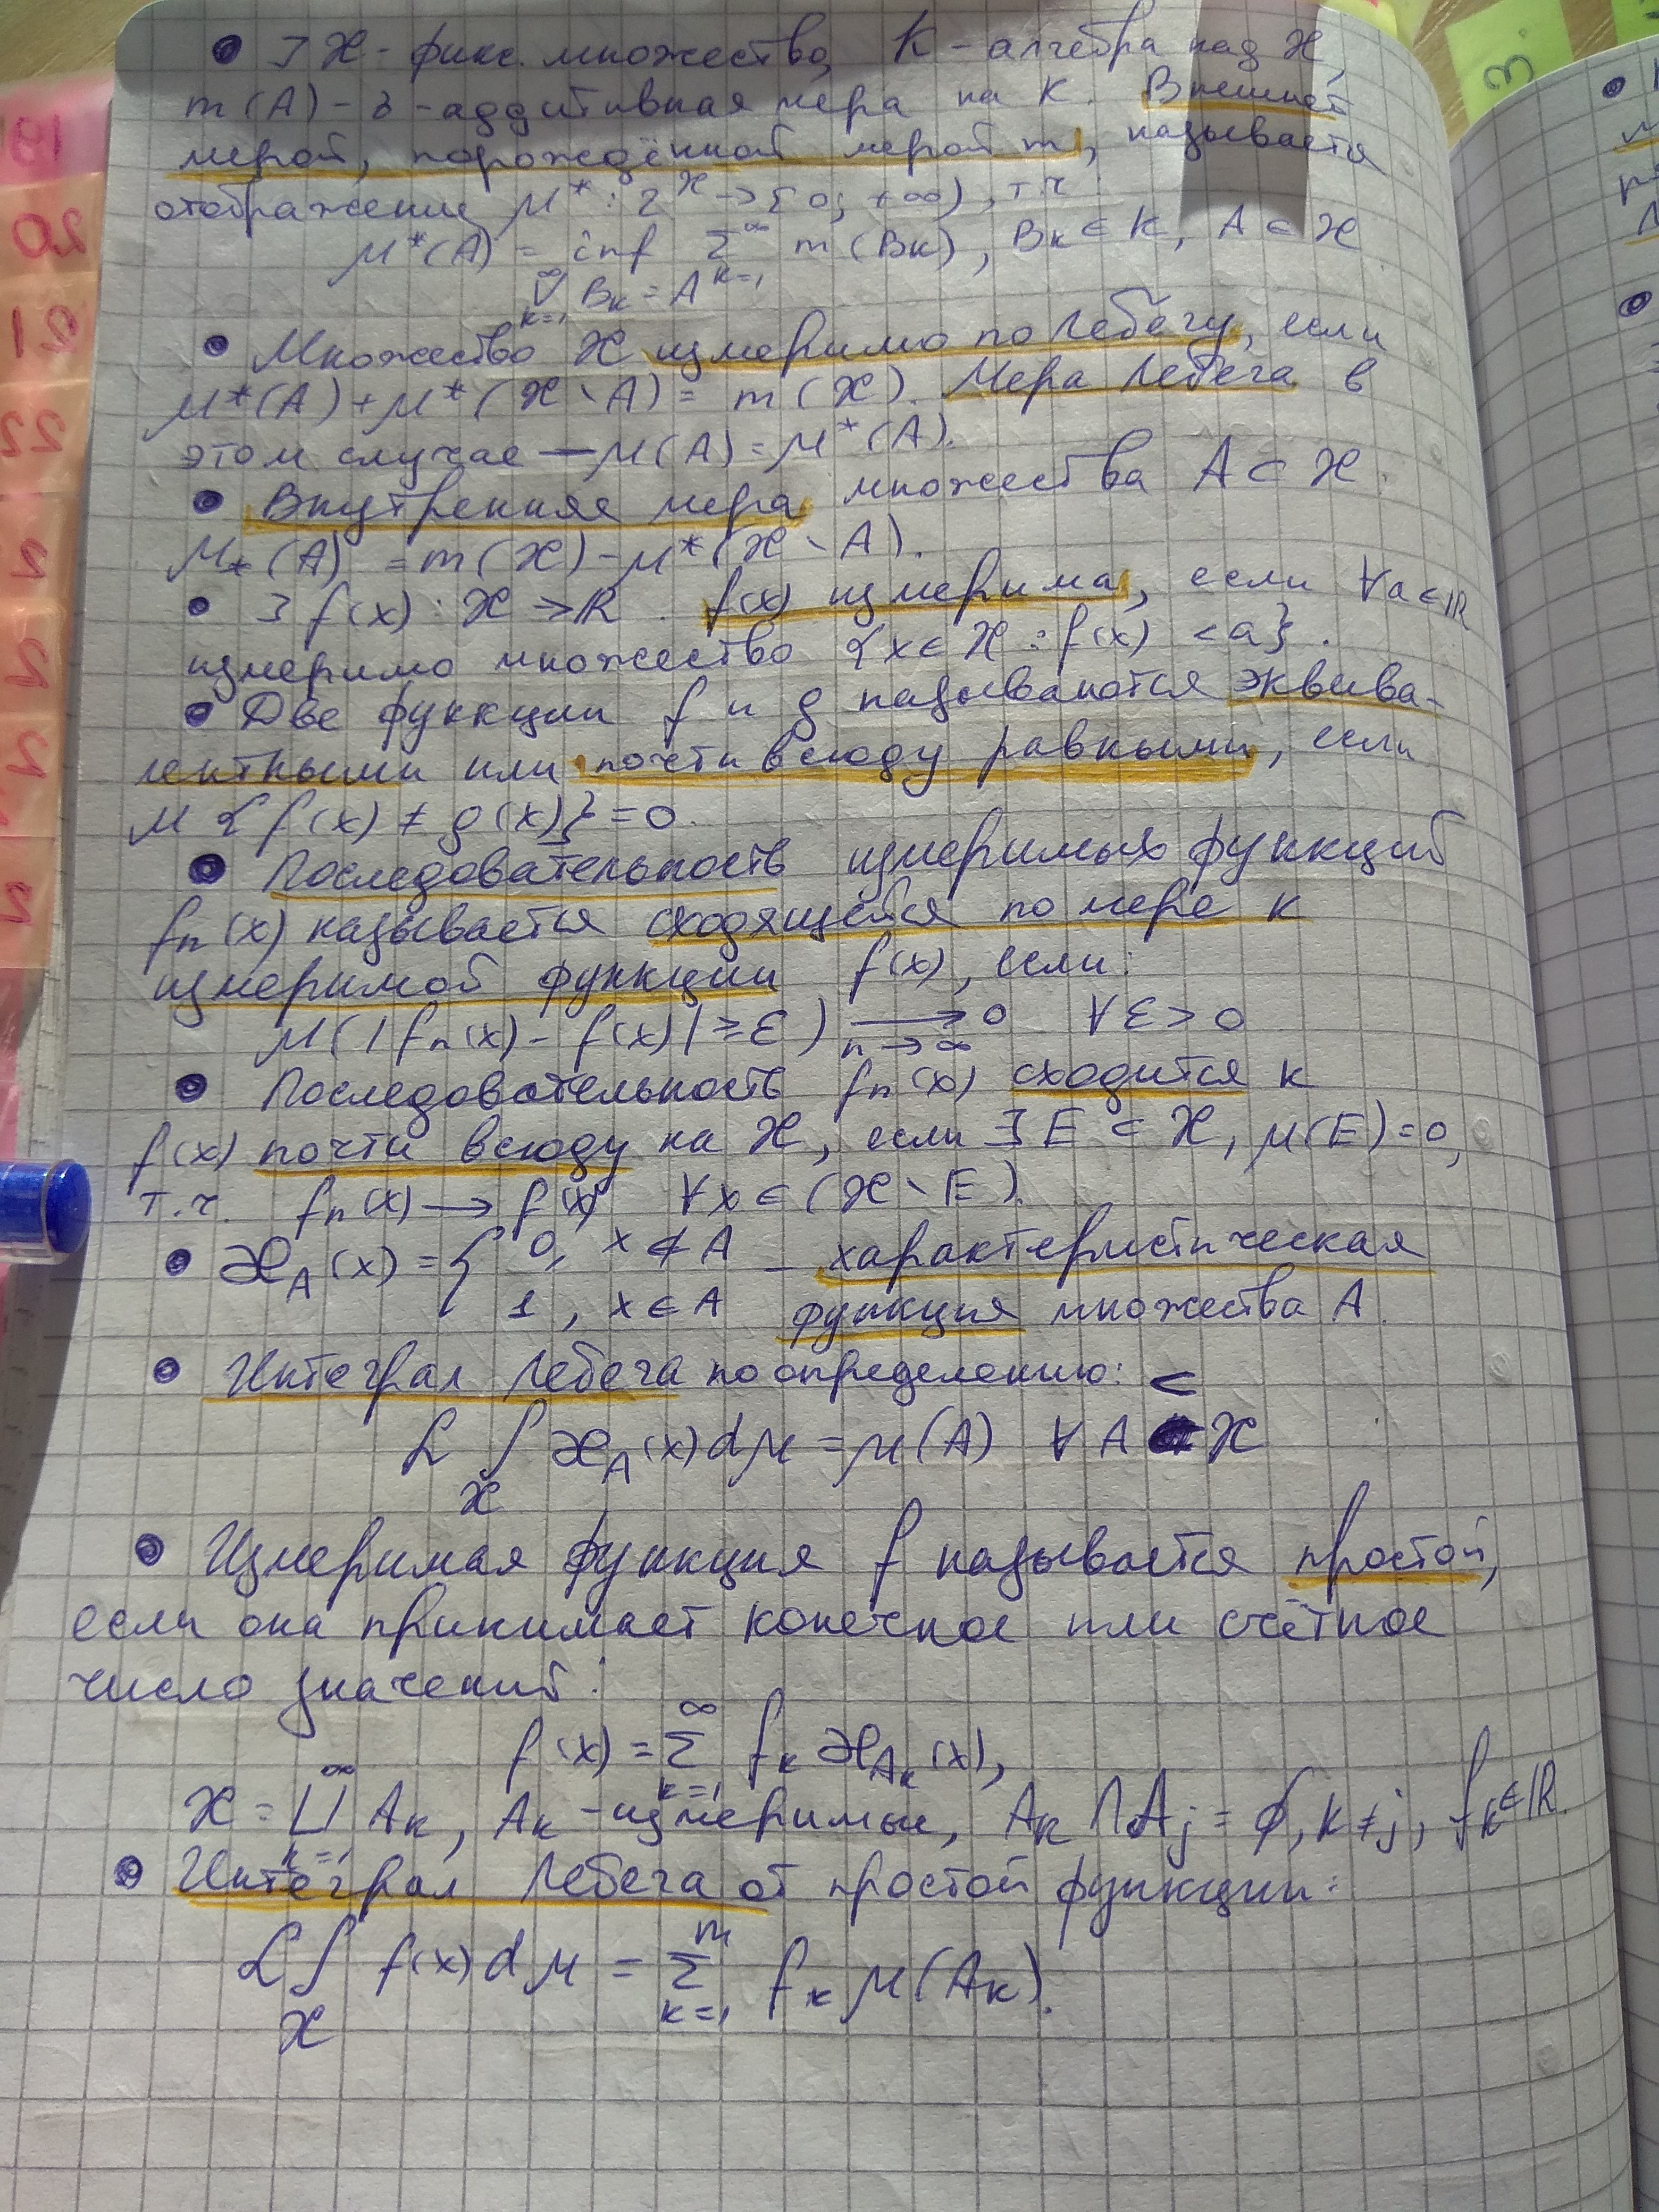 • ] X - фикс. множество, K - алгебра над X,
m(A) - σ-аддитивная мера на K. Внешней
мерой, порождённой мерой m, называется
отображение μ* : 2^X → [0; +∞), т.ч.
μ*(A) = inf ∑ m(Bₖ), Bₖ ∈ K, A ⊂ X
• Множество X измеримо по Лебегу, если
μ*(A) + μ*(X \ A) = m(X). Мера Лебега в
этом случае — μ(A) = μ*(A).
• Внутренняя мера множества A ⊂ X:
μ⁎(A) = m(X) - μ*(X \ A).
• ] f(x) : X → R. f(x) измерима, если ∀a ∈ ℝ
измеримо множество {x ∈ X : f(x) < a}.
• Две функции f и g называются эквива-
лентными или почти всюду равными, если
μ {f(x) ≠ g(x)} = 0.
• Последовательность измеримых функций
fₙ(x) называется сходящейся по мере к
измеримой функции f(x), если:
μ(|fₙ(x) - f(x)| ≥ ε) → 0 ∀ε > 0
n → ∞
• Последовательность fₙ(x) сходится к
f(x) почти всюду на X, если ∃E ⊂ X, μ(E) = 0,
т.ч. fₙ(x) → f(x) ∀x ∈ (X \ E).
• æ_A(x) = { 0, x ∉ A - характеристическая
1, x ∈ A функция множества A.
• Интеграл Лебега по определению: ⊂
L ∫ æ_A(x) dμ = μ(A) ∀A X
X
• Измеримая функция f называется простой,
если она принимает конечное или счётное
число значений:
f(x) = ∑_{k=1}^{∞} fₖ æ_{Aₖ}(x),
X = ⊔_{k=1}^{∞} Aₖ, Aₖ - измеримые, Aₖ ∩ Aⱼ = ∅, k ≠ j, fₖ ∈ ℝ.
• Интеграл Лебега от простой функции:
L ∫ f(x) dμ = ∑_{k=1}^{m} fₖ μ(Aₖ).
X
20
21
22
3